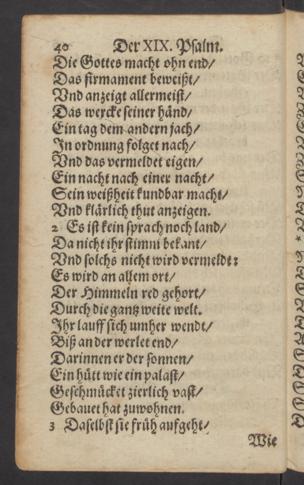 40 Der XIX. Psalm.
Die Gottes macht ohn end/
Das firmament beweißt/
Vnd anzeigt allermeist/
Das wercke seiner händ/
Ein tag dem andern jach/
In ordnung folget nach/
Vnd das vermeldet eigen/
Ein nacht nach einer nacht/
Sein weißheit kundbar macht/
Vnd klärlich thut anzeigen.
2 Es ist kein sprach noch land/
Da nicht ihr stimm bekant/
Vnd solchs nicht wird vermeldt:
Es wird an allem ort/
Der Himmeln red gehort/
Durch die gantz weite welt.
Ihr lauff sich umher wendt/
Biß an der werlet end/
Darinnen er der sonnen/
Ein hütt wie ein palast/
Geschmücket zierlich vast/
Gebauet hat zuwohnen.
3 Daselbst sie früh aufgeht/
Wie